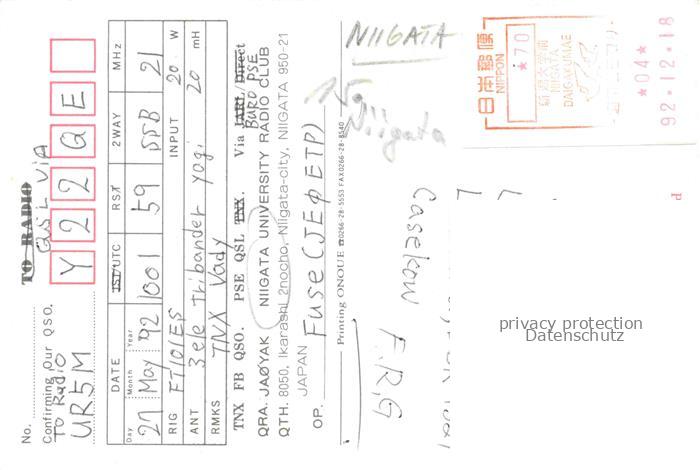 No.
Confirming Our QSO.
TO RADIO
To Radio
UR5M
QSL ViA
Y22QE
DATE JST/UTC RST 2WAY MHz
Day Month Year
27 May '92 1001 59 SSB 21
RIG FT101ES INPUT 20 W
ANT 3ele tribander yagi 20 mH
RMKS TNX Vady
TNX FB QSO. PSE QSL TNX. Via JARL/Direct
BURO PSE
QRA. JAØYAK NIIGATA UNIVERSITY RADIO CLUB
QTH. 8050, Ikarashi 2nocho, NIIgata-city, NIIGATA 950-21
JAPAN
OP. Fuse (JEΦETP)
Printing ONOUE ☎0266-28-5553 FAX0266-28-8540
NIIGATA
Niigata
日本郵便
NIPPON
*70*
新潟大学前
NIIGATA
DAIGAKUMAE
*04*
92.12.18
Casekow
F.R.G
privacy protection
Datenschutz